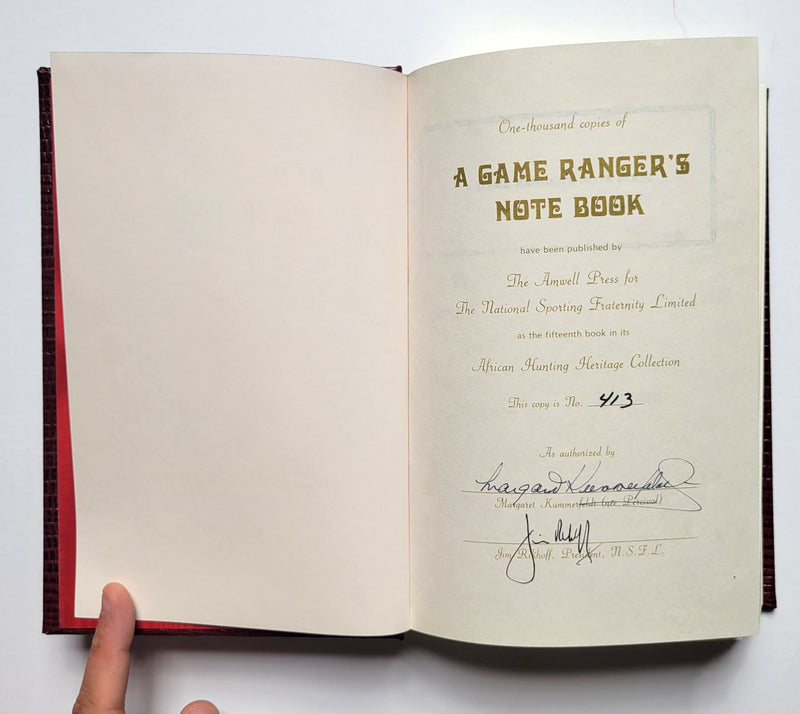 One-thousand copies of
A GAME RANGER'S
NOTE BOOK
have been published by
The Amwell Press for
The National Sporting Fraternity Limited
as the fifteenth book in its
African Hunting Heritage Collection
This copy is No. 413
As authorized by
Margaret Kummerfeldt
Margaret Kummerfeldt (née Percival)
Jim Rikhoff
Jim Rikhoff, President, N.S.F.L.